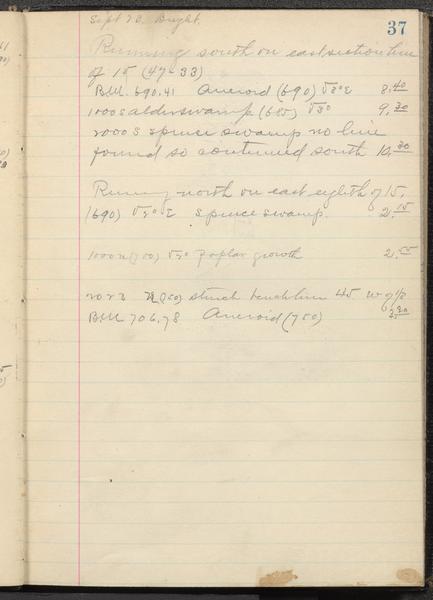 Sept 20. Bright.
37
Running south on east section line
of 15 (47-33)
B.M. 690.41 Aneroid (690) V3°E 8.40
1000 S alder swamp (685) V3° 9.30
2000 S spruce swamp no line
found so continued south 10.30
Running north on east eighth of 15.
(690) V2°E spruce swamp. 2.15
1000 N (700) V2° Poplar growth 2.55
2023 N (750) struck bench line 45 W of 1/8
B.M. 706.78 Aneroid (750)